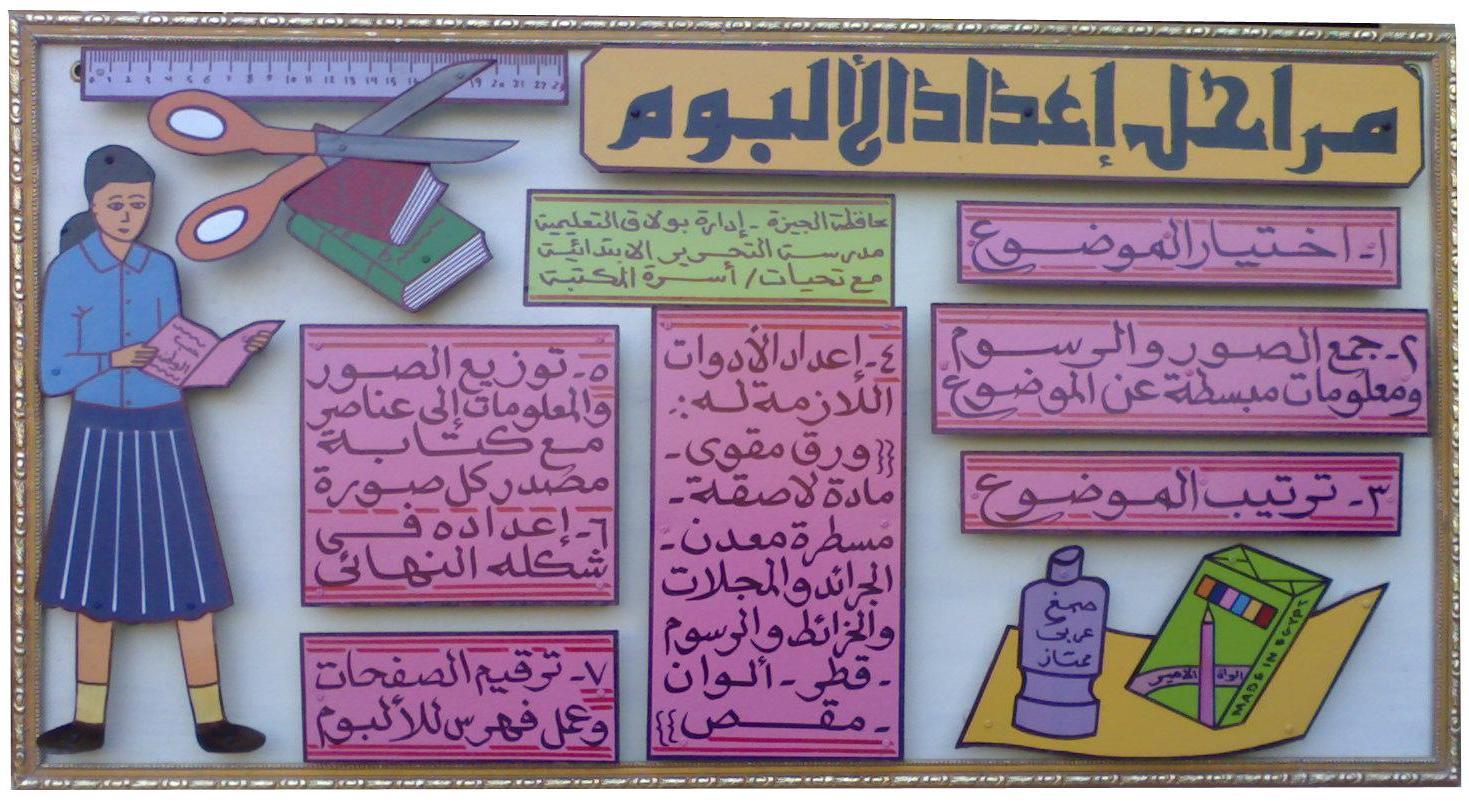 مراحل إعداد الألبوم
محافظة الجيزة - إدارة بولاق التعليمية
مدرسة التحرير الابتدائية
مع تحيات / أسرة المكتبة
١- اختيار الموضوع
٢- جمع الصور والرسوم
ومعلومات مبسطة عن الموضوع
٣- ترتيب الموضوع
٤- إعداد الأدوات
اللازمة له :.
{{ ورق مقوى -
مادة لاصقة -
مسطرة معدن -
الجرائد والمجلات
والخرائط والرسوم
- قطر - ألوان
- مقص }}
٥- توزيع الصور
والمعلومات إلى عناصر
مع كتابة
مصدر كل صورة
٦- إعداده في
شكله النهائى
٧- ترقيم الصفحات
وعمل فهرس للألبوم
صمغ
عربى
ممتاز
الوان الامير
MADE IN EGYPT